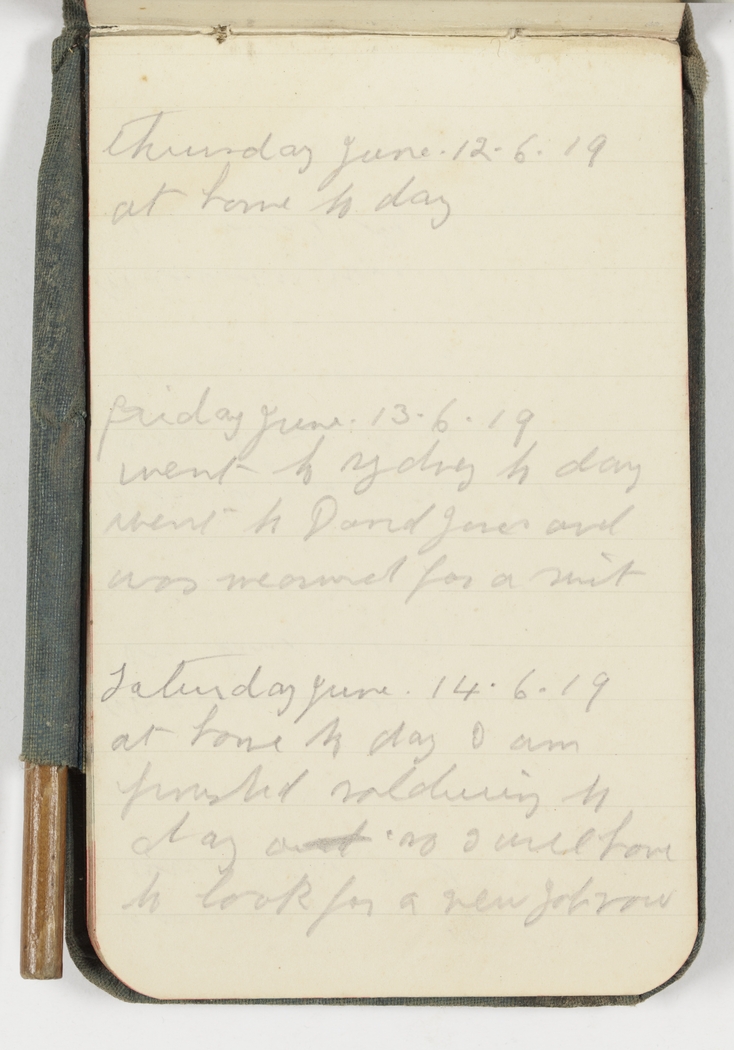 Thursday June. 12. 6. 19
at home to day
friday June. 13. 6. 19
went to Sydney to day
went to David Jones and
was measured for a suit
Saturday June. 14. 6. 19
at home to day I am
finished soldiering to
day and so I will have
to look for a new Job now